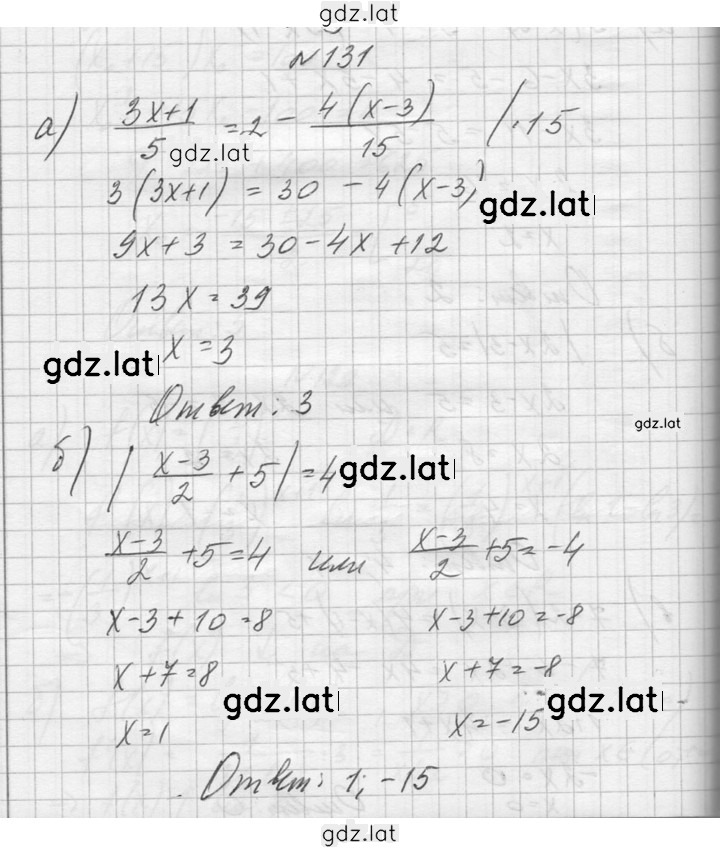 gdz.lat
№131
а) (3x+1)/5 = 2 - 4(x-3)/15 /·15
gdz.lat
3(3x+1) = 30 - 4(x-3)
gdz.lat
9x+3 = 30-4x+12
13x = 39
x = 3
gdz.lat
Ответ: 3
gdz.lat
б) |(x-3)/2 + 5| = 4
gdz.lat
(x-3)/2 + 5 = 4 или (x-3)/2 + 5 = -4
x-3+10=8 x-3+10=-8
x+7=8 x+7=-8
gdz.lat gdz.lat
x=1 x=-15
Ответ: 1; -15
gdz.lat